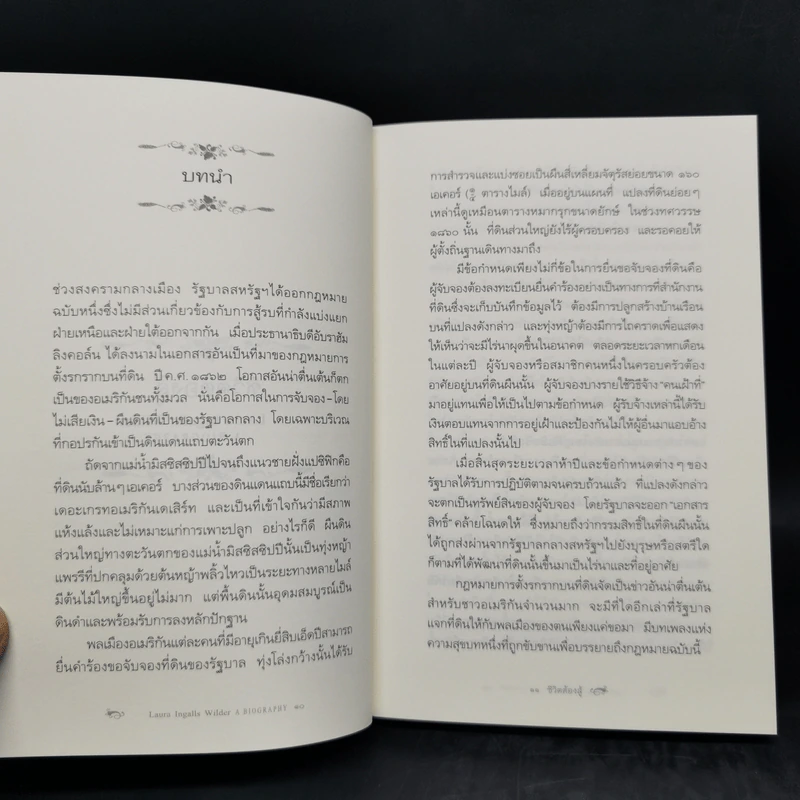 บทนำ
ช่วงสงครามกลางเมือง รัฐบาลสหรัฐฯได้ออกกฎหมาย
ฉบับหนึ่งซึ่งไม่มีส่วนเกี่ยวข้องกับการสู้รบที่กำลังแบ่งแยก
ฝ่ายเหนือและฝ่ายใต้ออกจากกัน เมื่อประธานาธิบดีอับราฮัม
ลิงคอล์น ได้ลงนามในเอกสารอันเป็นที่มาของกฎหมายการ
ตั้งรกรากบนที่ดิน ปี ค.ศ. ๑๘๖๒ โอกาสอันน่าตื่นเต้นก็ตก
เป็นของอเมริกันชนทั้งมวล นั่นคือโอกาสในการจับจอง–โดย
ไม่เสียเงิน–ผืนดินที่เป็นของรัฐบาลกลาง โดยเฉพาะบริเวณ
ที่กอปรกันเข้าเป็นดินแดนแถบตะวันตก
ถัดจากแม่น้ำมิสซิสซิปปีไปจนถึงแนวชายฝั่งแปซิฟิกคือ
ที่ดินนับล้านๆเอเคอร์ บางส่วนของดินแดนแถบนี้มีชื่อเรียกว่า
เดอะเกรทอเมริกันเดเสิร์ท และเป็นที่เข้าใจกันว่ามีสภาพ
แห้งแล้งและไม่เหมาะแก่การเพาะปลูก อย่างไรก็ดี ผืนดิน
ส่วนใหญ่ทางตะวันตกของแม่น้ำมิสซิสซิปปีนั้นเป็นทุ่งหญ้า
แพรรีที่ปกคลุมด้วยต้นหญ้าพลิ้วไหวเป็นระยะทางหลายไมล์
มีต้นไม้ใหญ่ขึ้นอยู่ไม่มาก แต่พื้นดินนั้นอุดมสมบูรณ์เป็น
ดินดำและพร้อมรับการลงหลักปักฐาน
พลเมืองอเมริกันแต่ละคนที่มีอายุเกินยี่สิบเอ็ดปีสามารถ
ยื่นคำร้องขอจับจองที่ดินของรัฐบาล ทุ่งโล่งกว้างนั้นได้รับ
Laura Ingalls Wilder A BIOGRAPHY ๑๐
การสำรวจและแบ่งซอยเป็นผืนสี่เหลี่ยมจัตุรัสย่อยขนาด ๑๖๐
เอเคอร์ (¼ ตารางไมล์) เมื่ออยู่บนแผนที่ แปลงที่ดินย่อยๆ
เหล่านี้ดูเหมือนตารางหมากรุกขนาดยักษ์ ในช่วงทศวรรษ
๑๘๖๐ นั้น ที่ดินส่วนใหญ่ยังไร้ผู้ครอบครอง และรอคอยให้
ผู้ตั้งถิ่นฐานเดินทางมาถึง
มีข้อกำหนดเพียงไม่กี่ข้อในการยื่นขอจับจองที่ดินคือ
ผู้จับจองต้องลงทะเบียนยื่นคำร้องอย่างเป็นทางการที่สำนักงาน
ที่ดินซึ่งจะเก็บบันทึกข้อมูลไว้ ต้องมีการปลูกสร้างบ้านเรือน
บนที่แปลงดังกล่าว และทุ่งหญ้าต้องมีการไถคราดเพื่อแสดง
ให้เห็นว่าจะมีไร่นาผุดขึ้นในอนาคต ตลอดระยะเวลาหกเดือน
ในแต่ละปี ผู้จับจองหรือสมาชิกคนหนึ่งในครอบครัวต้อง
อาศัยอยู่บนที่ดินผืนนั้น ผู้จับจองบางรายใช้วิธีจ้าง“คนเฝ้าที่”
มาอยู่แทนเพื่อให้เป็นไปตามข้อกำหนด ผู้รับจ้างเหล่านี้ได้รับ
เงินตอบแทนจากการอยู่เฝ้าและป้องกันไม่ให้ผู้อื่นมาแอบอ้าง
สิทธิ์ในที่แปลงนั้นไป
เมื่อสิ้นสุดระยะเวลาห้าปีและข้อกำหนดต่างๆของ
รัฐบาลได้รับการปฏิบัติตามจนครบถ้วนแล้ว ที่แปลงดังกล่าว
จะตกเป็นทรัพย์สินของผู้จับจอง โดยรัฐบาลจะออก“เอกสาร
สิทธิ์”คล้ายโฉนดให้ ซึ่งหมายถึงว่ากรรมสิทธิ์ในที่ดินผืนนั้น
ได้ถูกส่งผ่านจากรัฐบาลกลางสหรัฐฯไปยังบุรุษหรือสตรีใด
ก็ตามที่ได้พัฒนาที่ดินนั้นขึ้นมาเป็นไร่นาและที่อยู่อาศัย
กฎหมายการตั้งรกรากบนที่ดินจัดเป็นข่าวอันน่าตื่นเต้น
สำหรับชาวอเมริกันจำนวนมาก จะมีที่ใดอีกเล่าที่รัฐบาล
แจกที่ดินให้กับพลเมืองของตนเพียงแค่ขอมา มีบทเพลงแห่ง
ความสุขบทหนึ่งที่ถูกขับขานเพื่อบรรยายถึงกฎหมายฉบับนี้
๑๑ ชีวิตต้องสู้